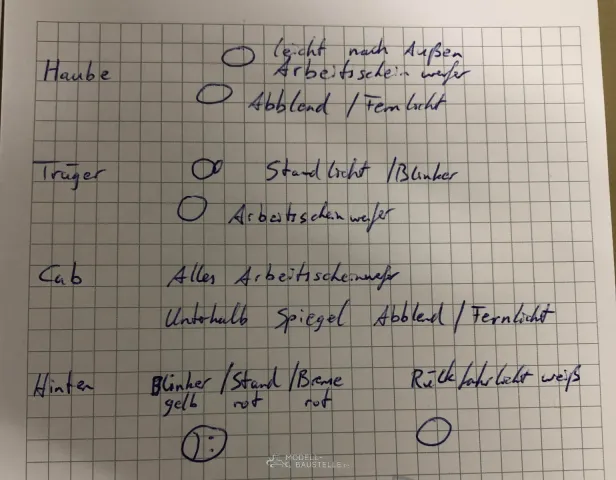 Haube
leicht nach Außen
Arbeitsscheinwerfer
Abblend / Fernlicht
Träger
Standlicht / Blinker
Arbeitsscheinwerfer
Cab
Alles Arbeitsscheinwerfer
Unterhalb Spiegel Abblend / Fernlicht
Hinten
Blinker / Stand / Breme
gelb rot rot
Rückfahrlicht weiß
MODELL-
BAUSTELLE